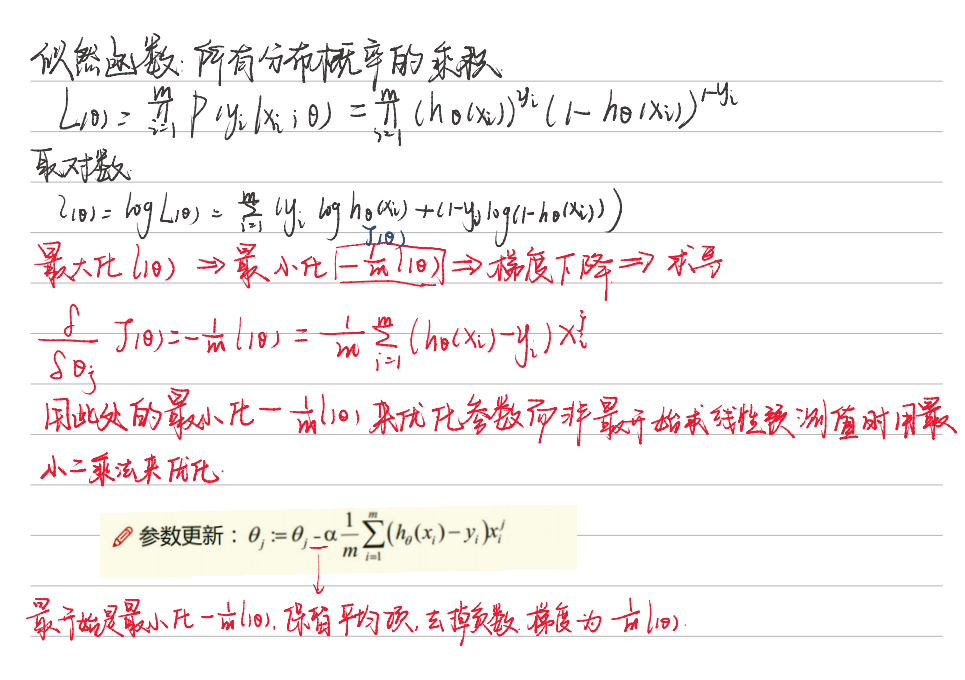 似然函数:所有分布概率的乘积
L(θ) = ∏_{i=1}^{m} P(y_i|x_i;θ) = ∏_{i=1}^{m} (h_θ(x_i))^{y_i} (1-h_θ(x_i))^{1-y_i}
取对数
l(θ) = log L(θ) = ∑_{i=1}^{m} (y_i log h_θ(x_i) + (1-y_i) log(1-h_θ(x_i)))
J(θ)
最大化 l(θ) ⇒ 最小化 -1/m l(θ) ⇒ 梯度下降 ⇒ 求导
δ/δθ_j J(θ) = -1/m l(θ) = 1/m ∑_{i=1}^{m} (h_θ(x_i)-y_i) x_i^j
因此处的最小化 -1/m l(θ) 来优化参数而非最开始求线性预测值时用最
小二乘法来优化.
参数更新: θ_j := θ_j - α 1/m ∑_{i=1}^{m} (h_θ(x_i)-y_i) x_i^j
最开始是最小化 -1/m l(θ), 保留平均项, 去掉负数 梯度为 1/m l(θ).